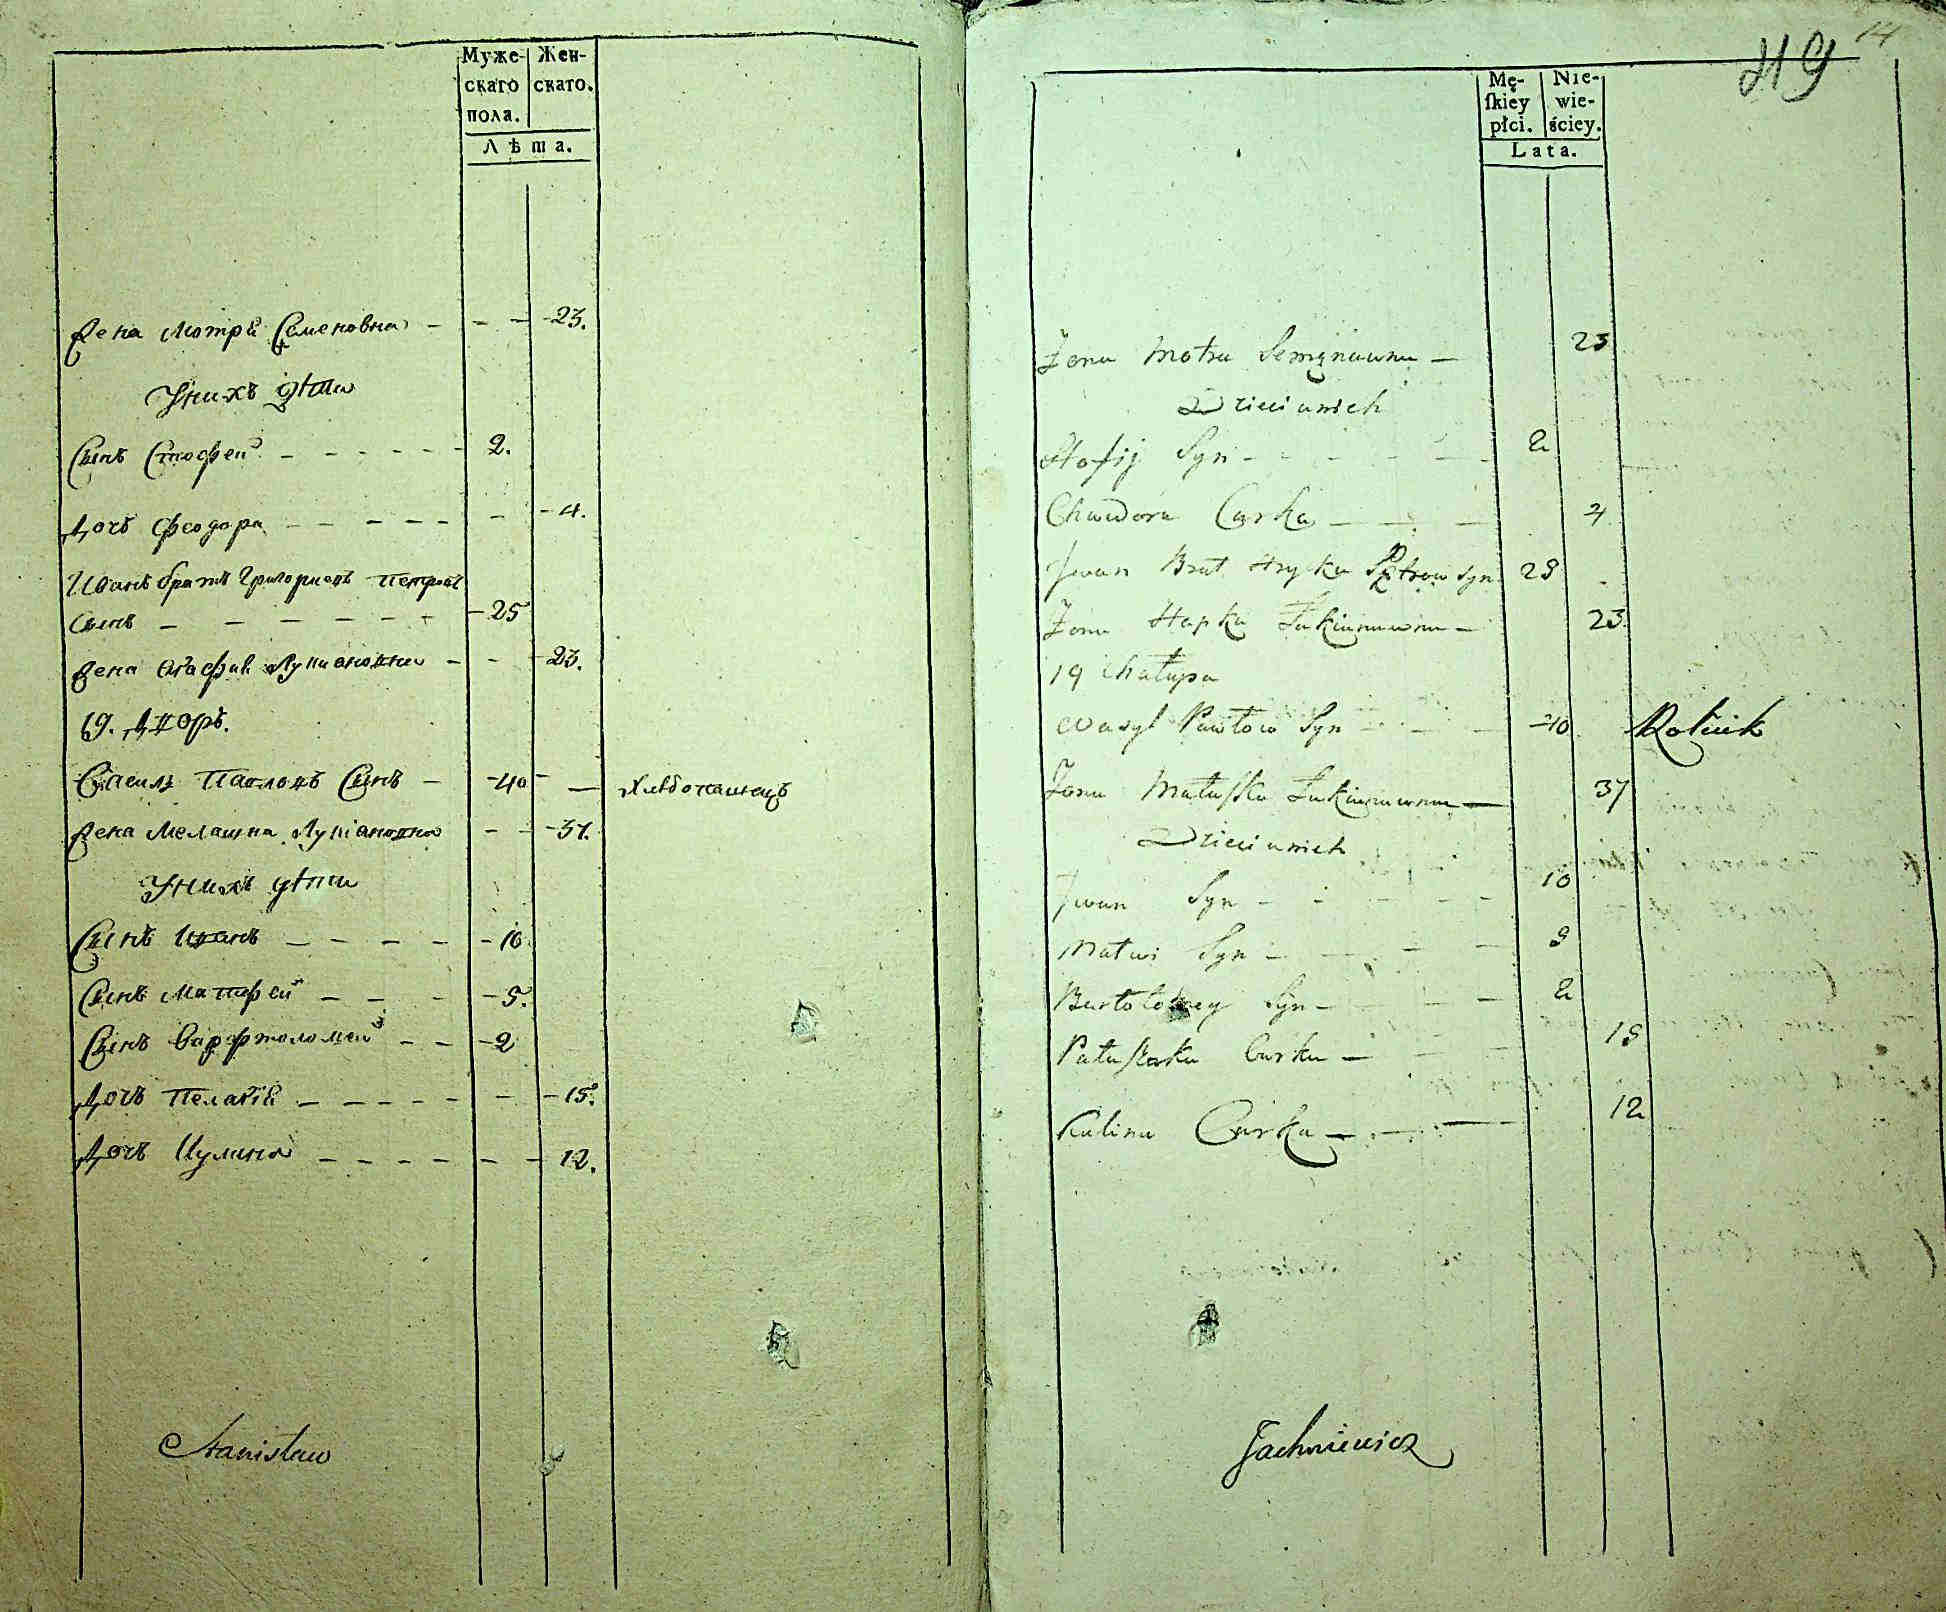 Муже- Жен-
скаго скаго.
пола.
Лѣта.
Жена Мотря Семеновна - - - 23.
У нихъ дѣти
Сынъ Стефей - - - - - - 2.
Дочь Феодора - - - - - - - 4.
Иванъ братъ Григориевъ Петровъ
Сынъ - - - - - - - 25
Жена Агафия Лукиановна - - - 23.
19. Дворъ.
Василь Павловъ Сынъ - - 40 - — Хлебопашецъ
Жена Мелашка Лукіановна - - - 37.
У нихъ дѣти
Сынъ Иванъ - - - - - 10.
Сынъ Матфей - - - - 5.
Сынъ Варфтоломей - - - 2
Дочь Пелагія - - - - - - - 15.
Дочь Кулина - - - - - - - 12.
Stanisław
14
419
Mę- Nie-
ſkiey wie-
płci. ściey.
Lata.
Żona Motra Semynowna — 23
Dzieci u nich
Stofij Syn - - - - - - 2
Chwedora Curka - - - 4
Jwan Brat Hryka Petrow Syn 25
Żona Hapka Łukianowna — 23.
19 Chałupa
Wasyl Pawłow Syn - - - 40 Rolnik
Żona Małaſzka Łukianowna — 37
Dzieci u nich
Jwan Syn - - - - - - 10
Matwi Syn - - - - 5
Bartołomey Syn - - - 2
Pałaſzka Curka - - - 15
Kulina Curka - - - 12
Jachniewicz